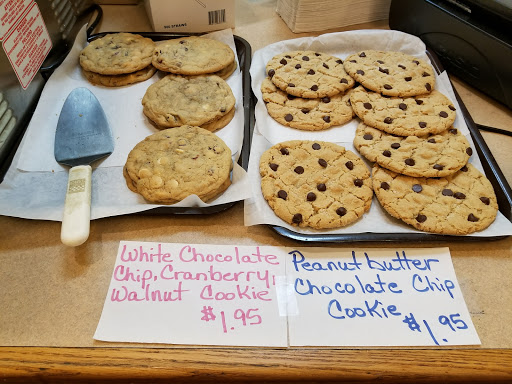 White Chocolate
Chip, Cranberry,
Walnut Cookie
$1.95
Peanut butter
Chocolate Chip
Cookie
$1.95